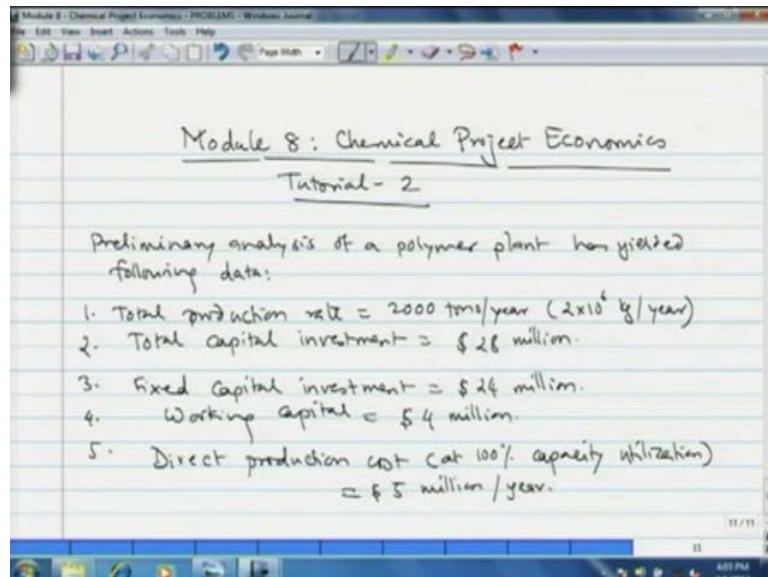 Module 8 - Chemical Project Economics - PROBLEMS - Windows Journal
File Edit View Insert Actions Tools Help
Page Width
Module 8: Chemical Project Economics
Tutorial - 2
Preliminary analysis of a polymer plant has yielded
following data:
1. Total production rate = 2000 tons/year (2x10⁶ kg/year)
2. Total capital investment = $ 28 million.
3. Fixed capital investment = $ 24 million.
4. Working capital = $ 4 million.
5. Direct production cost (at 100% capacity utilization)
= $ 5 million/year.
11/11
11
4:01 PM